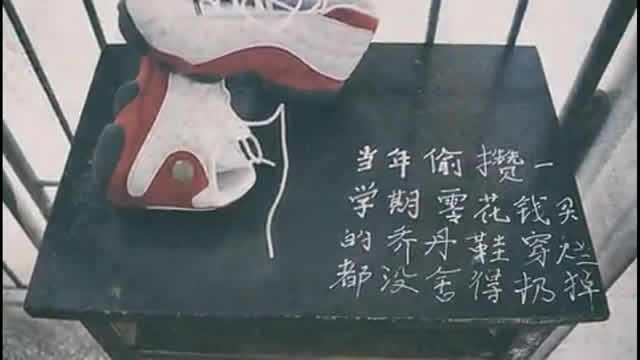 当年偷攒一
学期零花钱买
的乔丹鞋穿烂
都没舍得扔掉